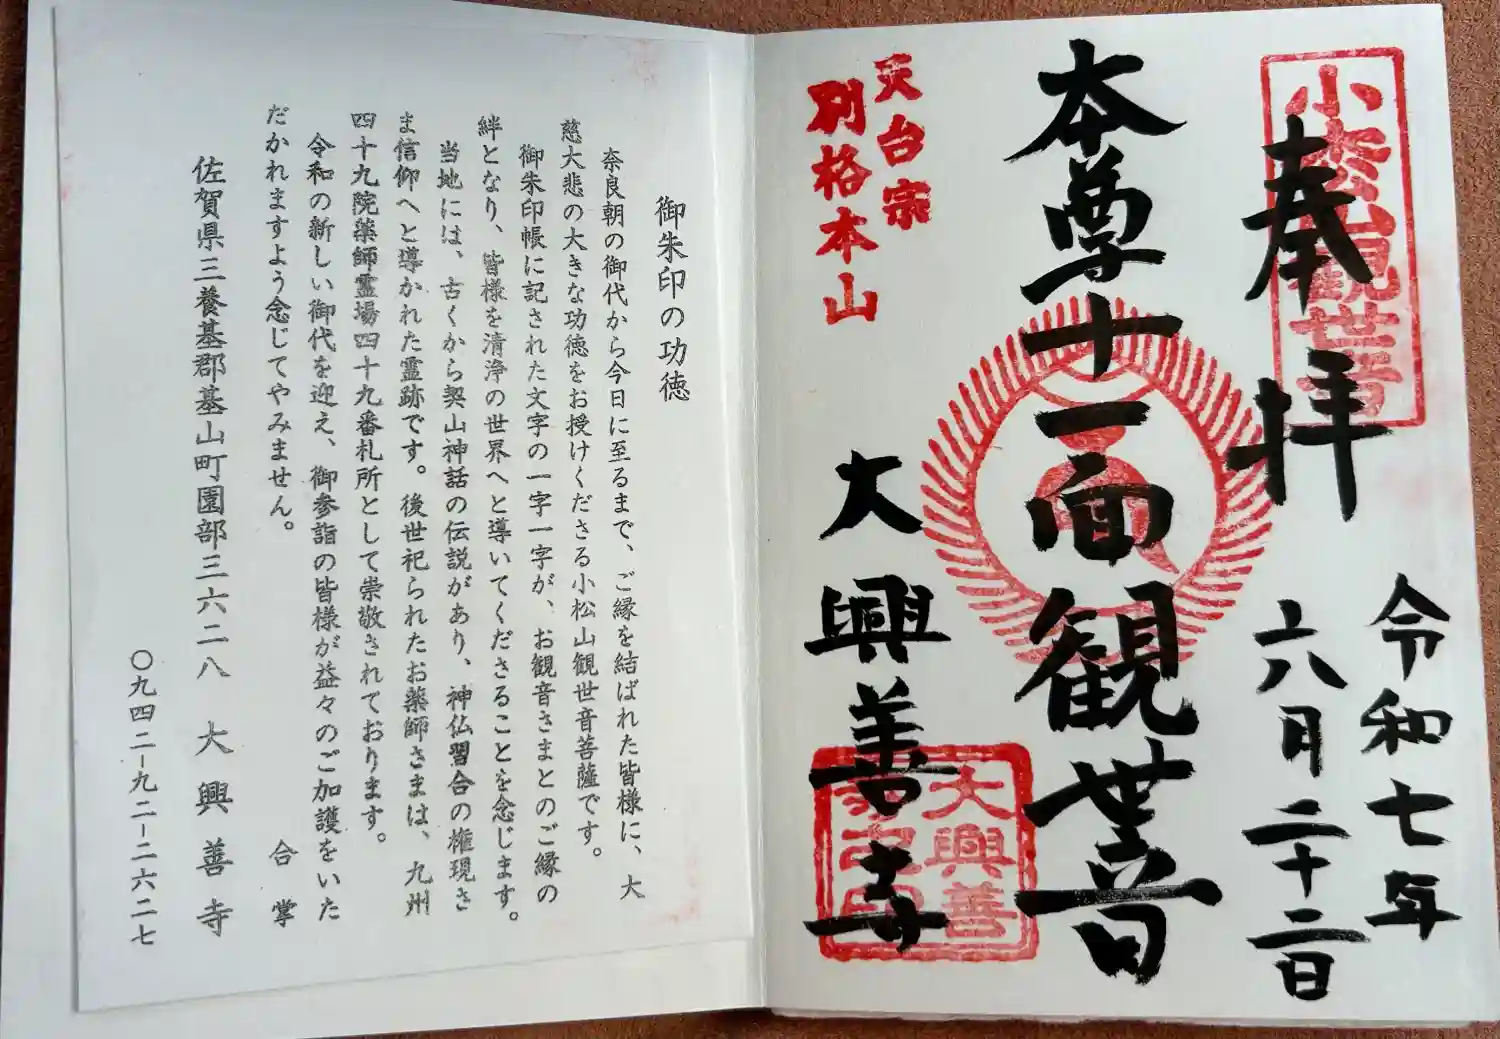 小松山観世音
奉拝
令和七年
六月二十二日
本尊十一面観世音
天台宗
別格本山
大興善寺
大興善
寺之印
御朱印の功徳
奈良朝の御代から今日に至るまで、ご縁を結ばれた皆様に、大
慈大悲の大きな功徳をお授けくださる小松山観世音菩薩です。
御朱印帳に記された文字の一字一字が、お観音さまとのご縁の
絆となり、皆様を清浄の世界へと導いてくださることを念じます。
当地には、古くから契山神話の伝説があり、神仏習合の権現さ
ま信仰へと導かれた霊跡です。後世祀られたお薬師さまは、九州
四十九院薬師霊場四十九番札所として崇敬されております。
令和の新しい御代を迎え、御参詣の皆様が益々のご加護をいた
だかれますよう念じてやみません。
合掌
佐賀県三養基郡基山町園部三六二八 大興善寺
〇九四二−九二−二六二七